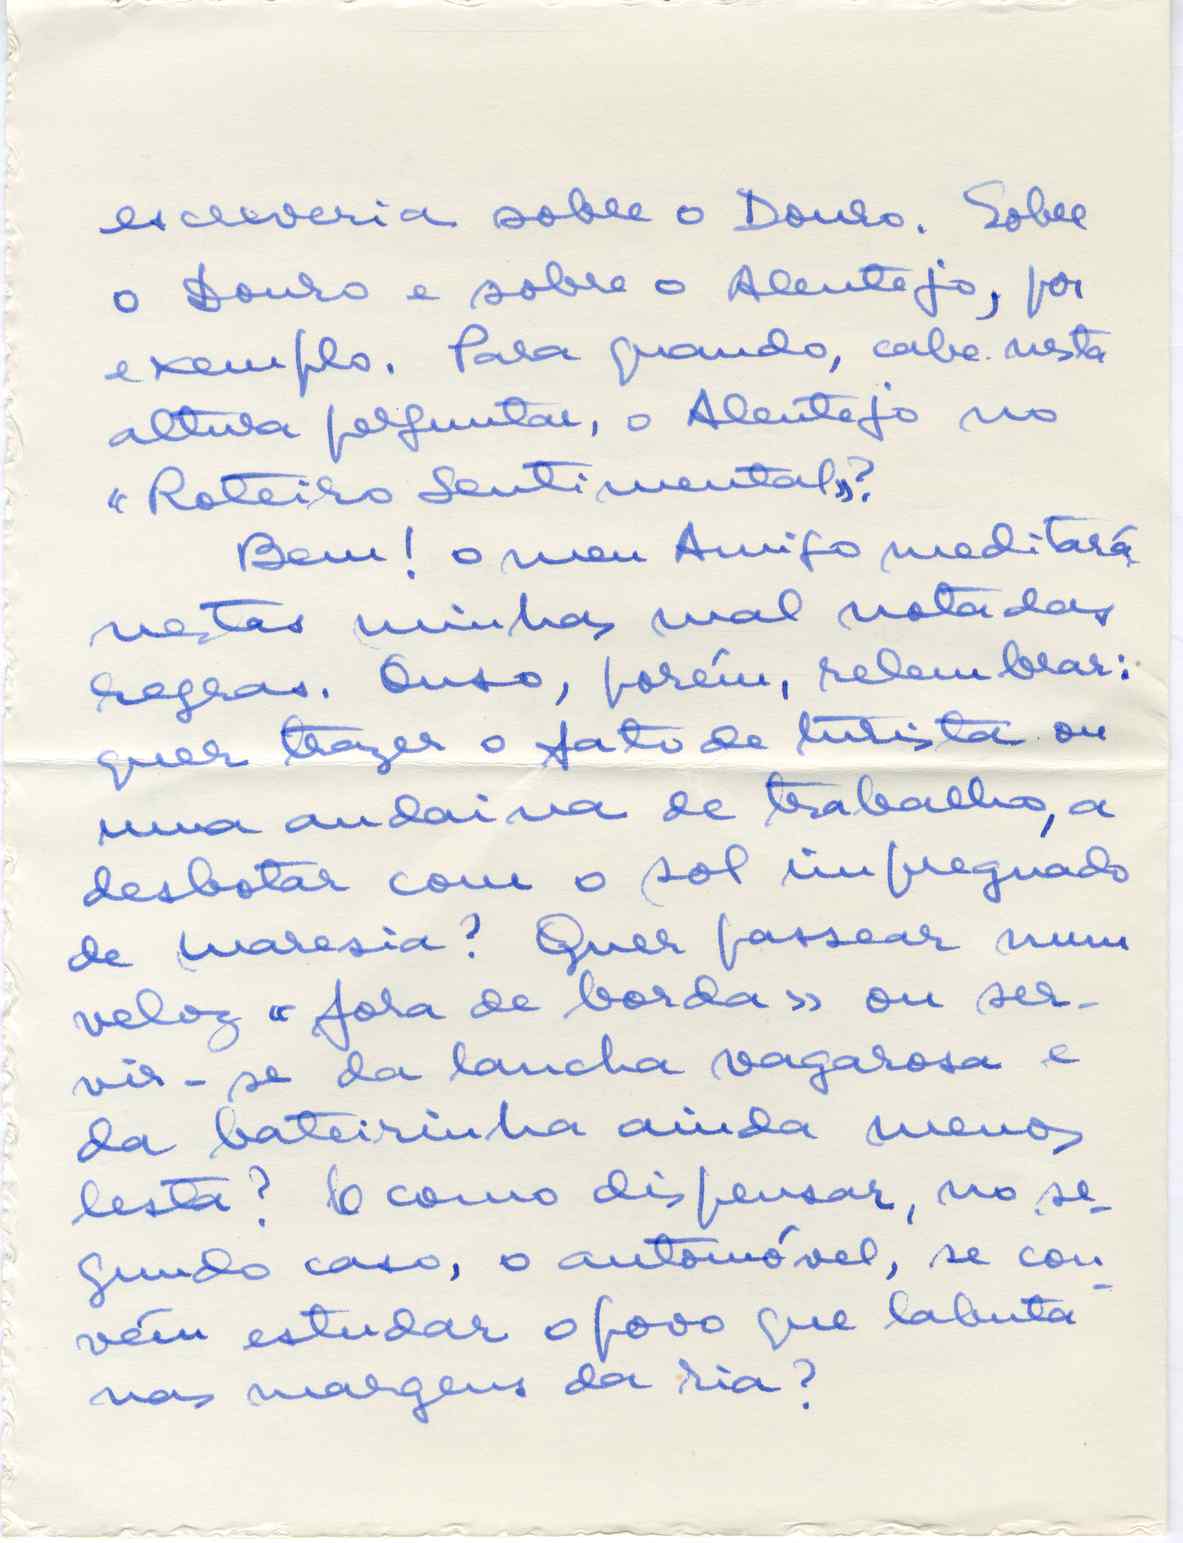 escreveria sobre o Douro. Sobre
o Douro e sobre o Alentejo, por
exemplo. Para quando, cabe nesta
altura perguntar, o Alentejo no
«Roteiro Sentimental»?
Bem! o meu Amigo meditará
nestas minhas mal notadas
regras. Ouso, porém, relembrar:
quer trazer o fato de turista ou
uma andaina de trabalho, a
desbotar com o sol impregnado
de maresia? Quer passear num
veloz «fora de borda» ou ser-
vir-se da lancha vagarosa e
da bateirinha ainda menos
lesta? E como dispensar, no se-
gundo caso, o automóvel, se con-
vém estudar o povo que labuta
nas margens da ria?